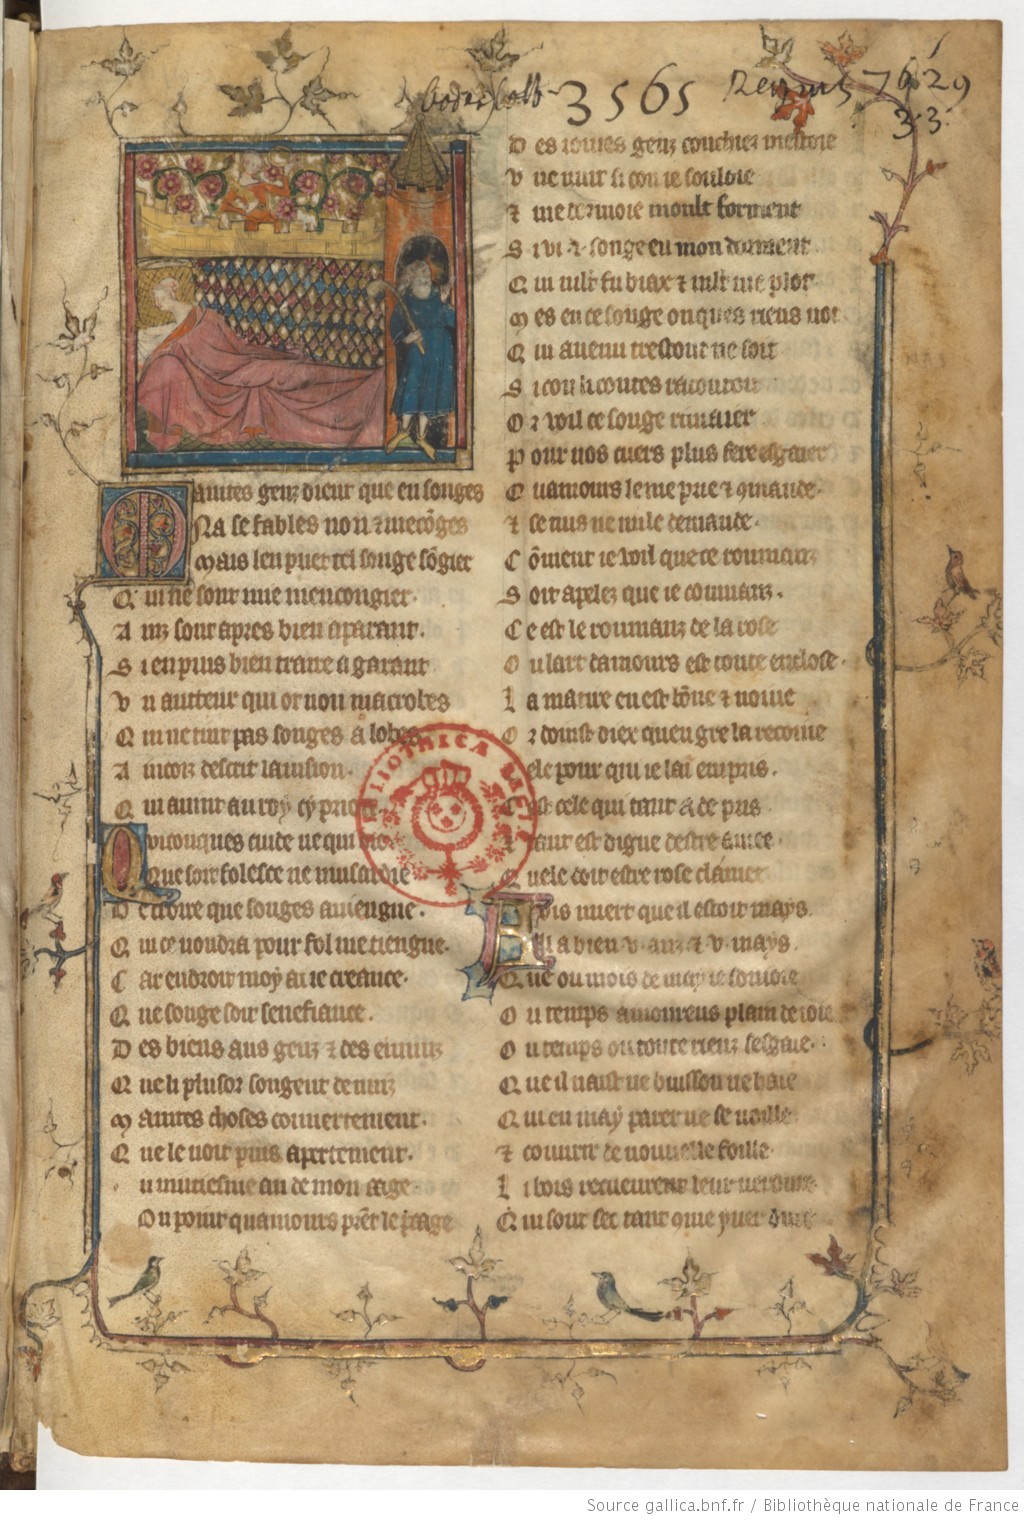 3565
7629
3.3.
Maintes genz dient que en songes
Na se fables non et mēcōges
Mais len puet tel songe sōgier
Qui ne sont mie mencongier.
Ainz sont apres bien aparant.
Si en puis bien traire a garant
Un autteur qui ot non macrobes
Qui ne tint pas songes a lobes
Aincoiz descrit la uision.
Qui auint au roy cyprion
Quiconques cuide ne qui die
Que soit folesce ne musardie
De croire que songes auiengne.
Qui ce uoudra pour fol me tiengne.
Car endroit moy ai ie creance.
Que songe soit senefiance.
Des biens aus genz et des ennuiz
Que li plusor songent de nuiz
Maintes choses couuertement.
Que le uoit puis apertement.
u uintiesme an de mon aage
Ou point quamours prēt le paage
Des iones genz couchier mestoie
Une nuit si con ie souloie
et me dormoie moult forment
Si ui .i. songe en mon dorment
Qui mlt fu biax et mlt me plot
Mes en ce songe onques riens not
Qui auenu trestout ne soit
Si con li contes racontoit
Or uoil ce songe rimaier
Pour uos cuers plus fere esgaier
Quamours le me prie et 9mande.
et se nus ne nule demande.
Cōment ie uoil que ce roumanz
Soit apelez que ie coumanz.
Ce est le roumanz de la rose
Ou lart damours est toute enclose.
La matire en est bōne et noiue
Or doint diex quen gre la recoiue
cele pour qui ie lai empris.
Cest cele qui tant a de pris
Et tant est digne destre amee.
Quele doit estre rose clamee
Auis mert que il estoit mays
Il a bien .v. anz et .v. mays.
Que ou mois de may ie sonioie
Ou temps amoireus plain de ioie
Ou temps ou toute rienz sesgaie.
Que il naist ne buisson ne haie
Qui en may parer ne se uoille
et couurir de nouuelle foille.
Li bois recueurent leur uerdure
Qui sont sec tant 9me yuer dure
BIBLIOTHECA REGIA
Source gallica.bnf.fr / Bibliothèque nationale de France